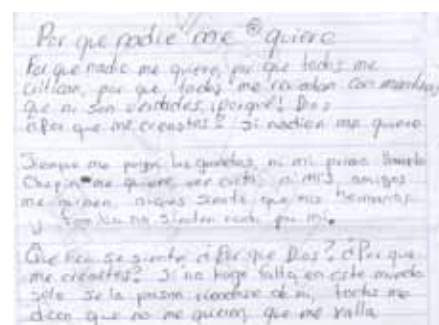 Por que nadie me quiero
Por que nadie me quiere, por que todos me
critican, por que, todos me con mentiras,
que ni son verdades, ¡porqué! Dios
¿Por que me creastes? Si nadien me quiere.
Siempre me pegan las, ni mi primo llamado
Chepin me quiere, ver cerca, ni mis amigos
me quieren, siento que mis hermanos
y familia no sienten nada por mi.
Que feo se siente ¿Por que Dios? ¿Por que
me creastes? Si no hago falla, en este mundo
solo se la pasan de mi, todos me
dicen que no me quieren, que me valla